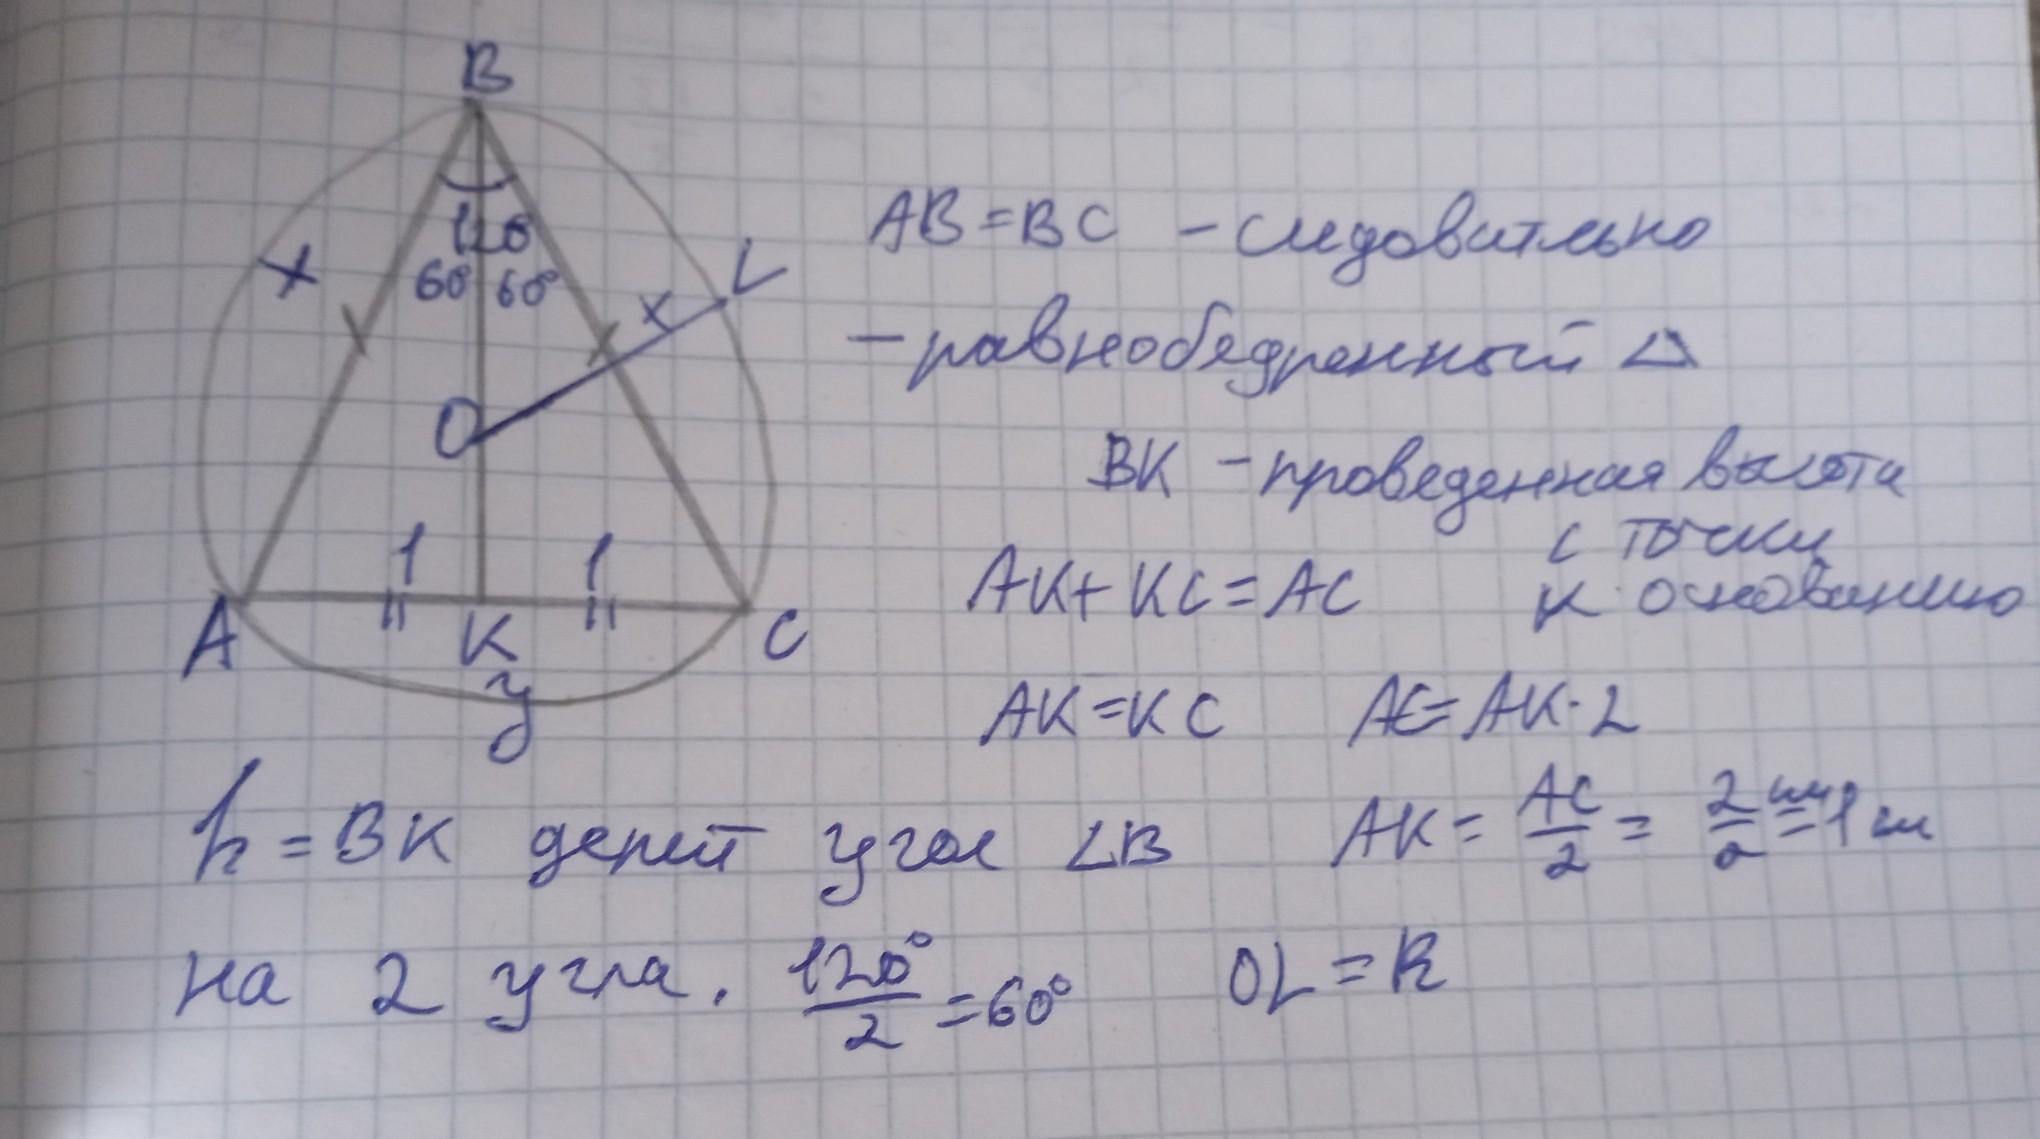 B
120
60° 60°
x
x
L
O
1 1
A K C
y
AB = BC - следовательно
- равнобедренный △
BK - проведенная высота
с точки
к основанию
AK + KC = AC
AK = KC AC = AK · 2
h = BK делит угол ∠B
AK = AC/2 = 2 см/2 = 1 см
на 2 угла. 120°/2 = 60° OL = R